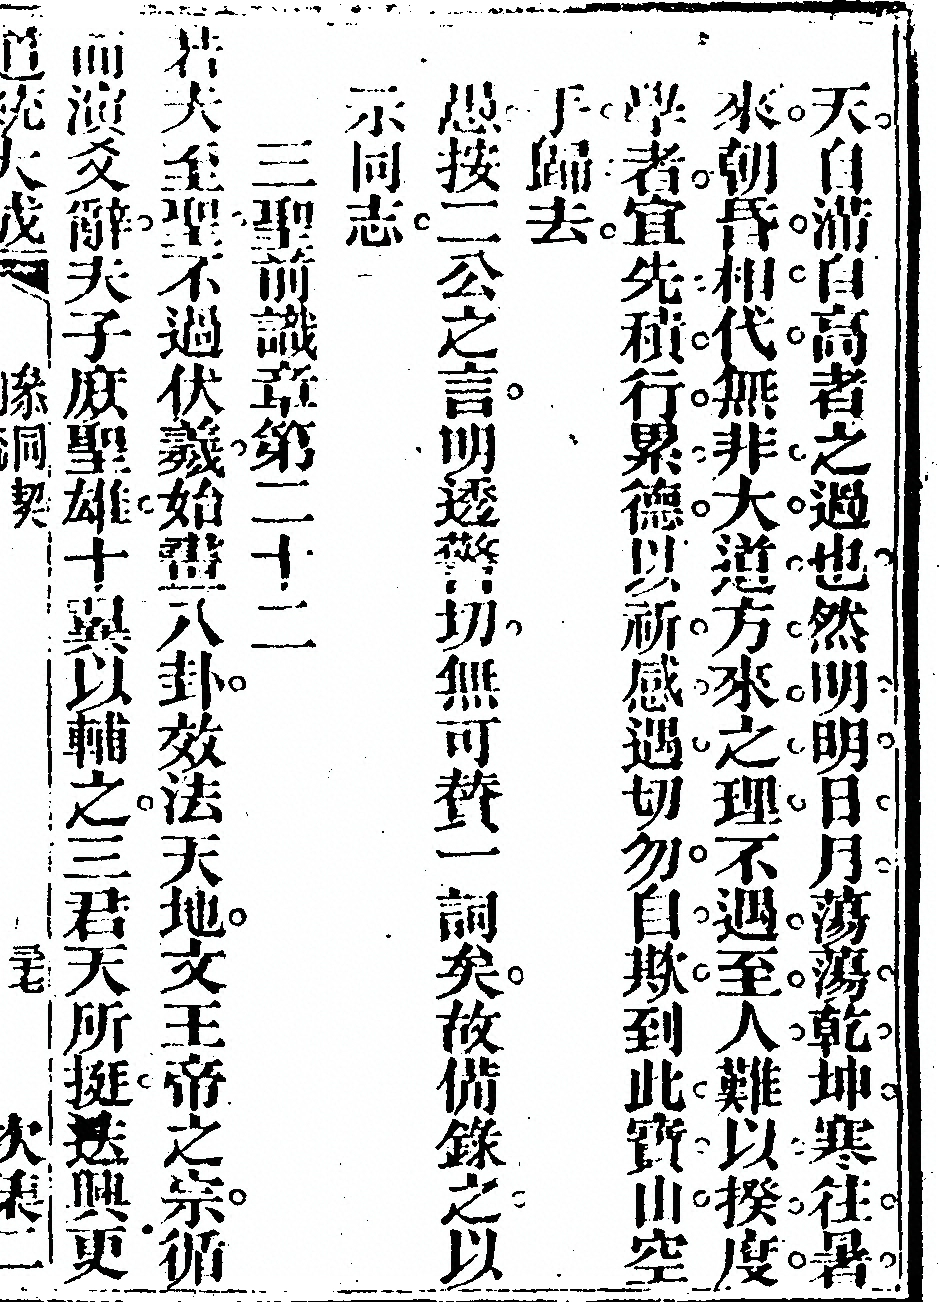 天自滿自高者之過也然明明日月蕩蕩乾坤寒往暑
來朝昏相代無非大道方來之理不遇至人難以揆度
學者宜先積行累德以祈感遇切勿自欺到此寶山空
手歸去
愚按二公之言明透警切無可贊一詞矣故備錄之以
示同志
三聖前識章第二十二
若夫至聖不過伏羲始畫八卦效法天地文王帝之宗循
而演爻辭夫子庶聖雄十翼以輔之三君天所挺迭興更
道統大成
次集二